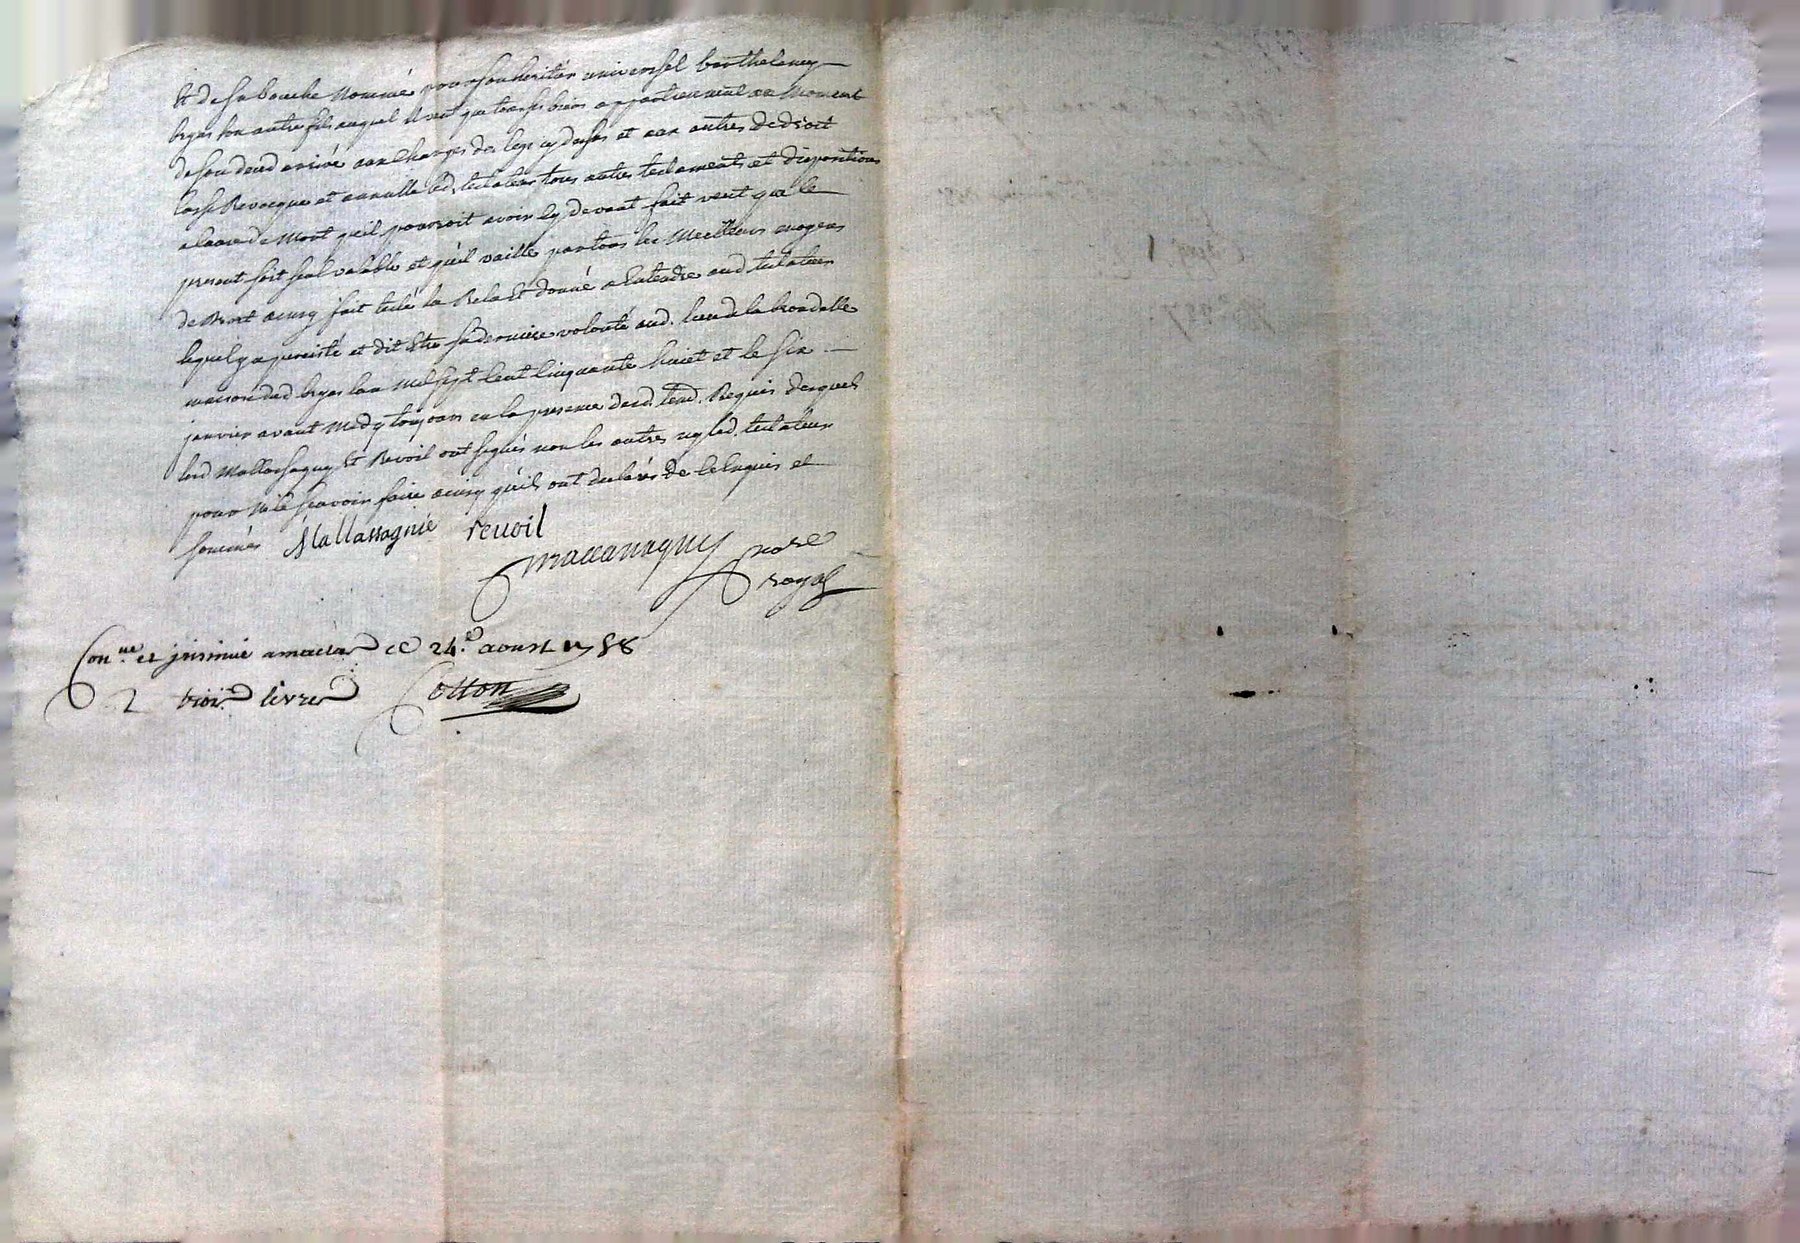 Et de sa bouche Nommé pour son heritier universel barthelemy
bryas son autre fils auquel il veut que tous ses biens appartiennent au Moment
de son deced arrivé aux charges des legs cy dessus et aux autres de droit
Casse Revocque et annulle led. testateur tous autres testaments et dispositions
a cause de Mort qu'il pourroit avoir cy devant fait veut que le
present soit seul valable et qu'il vaille par tous les Meilleurs moyens
de droit ainsy fait testé la Relu et donné a entendre aud testateur
lequel y a persisté et dit Etre sa derniere volonté aud. lieu de la
maison dud bryas lan Mil sept Cent Cinquante huict et le six
janvier avant Midy toujours en la presence desd. tem. Requis desquels
lesd Mallassagny Et Revoil ont signés non les autres ny led. testateur
pour ne le scavoir faire ainsy qu'ils ont declarés de ce Enquis et
sommés Mallassagnie revoil
mallassagny nore
royal
Con.lle et jnsinué a ce 24.e aoust 1758
R trois livres Cotton